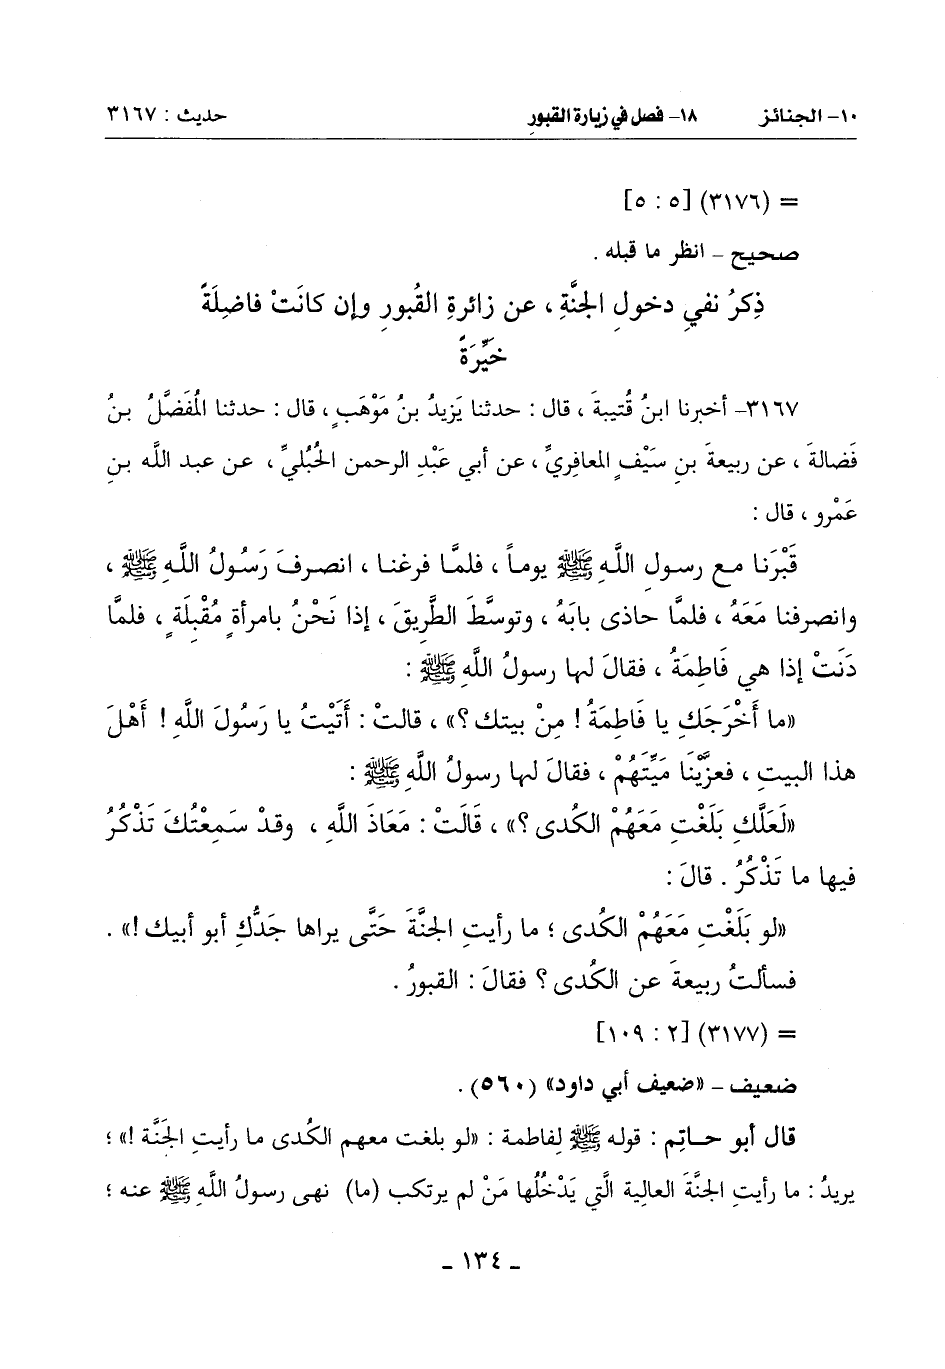 ١٠- الجنائز ١٨- فصل في زيارة القبور حديث : ٣١٦٧
= (٣١٧٦) [٥ : ٥]
صحيح - انظر ما قبله .
ذِكرُ نفيِ دخولِ الجنَّةِ ، عن زائرةِ القُبورِ وإن كانَتْ فاضِلَةً
خَيِّرَةً
٣١٦٧- أخبرنا ابنُ قُتيبةَ ، قال : حدثنا يَزيدُ بنُ مَوْهَبٍ ، قال : حدثنا المُفَضَّلُ بنُ
فَضالةَ ، عن ربيعةَ بنِ سَيْفٍ المعافِريِّ ، عن أبي عَبْدِ الرحمن الحُبُليِّ ، عن عبد اللَّه بنِ
عَمْرو ، قال :
قَبَرْنا مع رسولِ اللَّهِ ﷺ يوماً ، فلمَّا فرغنا ، انصرفَ رَسُولُ اللَّهِ ﷺ ،
وانصرفنا مَعَهُ ، فلمَّا حاذى بابَهُ ، وتوسَّطَ الطَّريقَ ، إذا نَحْنُ بامرأةٍ مُقْبِلَةٍ ، فلمَّا
دَنَتْ إذا هي فَاطِمَةُ ، فقالَ لها رسولُ اللَّهِ ﷺ :
«ما أَخْرَجَكِ يا فَاطِمَةُ ! مِنْ بيتك ؟» ، قالتْ : أَتَيْتُ يا رَسُولَ اللَّهِ ! أَهْلَ
هذا البيتِ ، فعزَّيْنَا مَيِّتَهُمْ ، فقالَ لها رسولُ اللَّهِ ﷺ :
«لَعَلَّكِ بَلَغْتِ مَعَهُمْ الكُدى ؟» ، قَالَتْ : مَعَاذَ اللَّهِ ، وقدْ سَمِعْتُكَ تَذْكُرُ
فيها ما تَذْكُرُ . قالَ :
«لو بَلَغْتِ مَعَهُمْ الكُدى ؛ ما رأيتِ الجنَّةَ حَتَّى يراها جَدُّكِ أبو أبيك !» .
فسألتُ ربيعةَ عن الكُدى ؟ فقالَ : القبورُ .
= (٣١٧٧) [٢ : ١٠٩]
ضعيف - «ضعيف أبي داود» (٥٦٠) .
قال أبو حاتِم : قوله ﷺ لِفاطمة : «لو بلغت معهم الكُدى ما رأيتِ الجَنَّة !» ؛
يريدُ : ما رأيتِ الجنَّةَ العالية الَّتي يَدْخُلُها مَنْ لم يرتكب (ما) نهى رسولُ اللَّهِ ﷺ عنه ؛
- ١٣٤ -